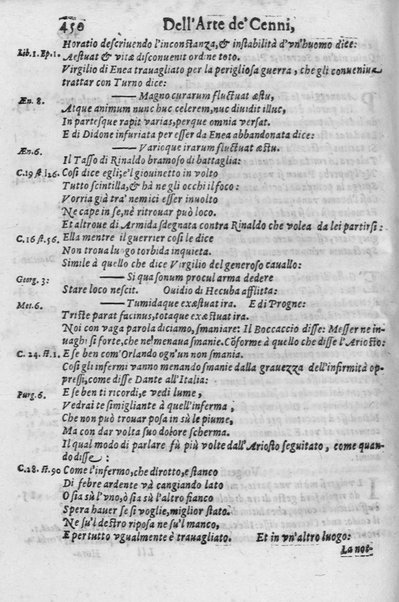 450 Dell'Arte de' Cenni,
Horatio descriuendo l'inconstanza, & instabilità d'vn'huomo dice:
Lib. 1. Ep. 1. Aestuat & vitæ disconuenit ordine toto.
Virgilio di Enea trauagliato per la perigliosa guerra, che gli conueniua
trattar con Turno dice:
Æn. 8. —— Magno curarum fluctuat æstu,
Atque animum nunc huc celerem, nuc diuidit illuc,
In partesque rapit varias, perque omnia versat.
E di Didone infuriata per esser da Enea abbandonata dice:
Æn. 6. —— Varioque irarum fluctuat æstu.
Il Tasso di Rinaldo bramoso di battaglia:
C. 19 st. 126. Così dice egli; e'l giouinetto in volto
Tutto scintilla, & hà ne gli occhi il foco:
Vorria già tra' nemici esser inuolto
Ne cape in se, nè ritrouar può loco.
Et altroue di Armida sdegnata contra Rinaldo che volea da lei partirsi:
C. 16 st. 56. Ella mentre il guerrier così le dice
Non troua luogo torbida inquieta.
Simile à quello che dice Virgilio del generoso cauallo:
Georg. 3: —— Si qua sonum procul arma dedere
Stare loco nescit. Ouidio di Hecuba afflitta:
Met. 6. —— Tumidaque exæstuat ira. E di Progne:
Triste parat facinus, totaque exæstuat ira.
Noi con vaga parola diciamo, smaniare: Il Boccaccio disse: Messer ne in-
uaghì sì forte, che ne' menaua smanie. Cōforme à quello che disse l'Ariosto:
C. 24. st. 1. E se ben com'Orlando ogn'un non smania.
Così gli infermi vanno menando smanie dalla grauezza dell'infirmità op-
pressi, come disse Dante all'Italia:
Purg. 6. E se ben ti ricordi, e vedi lume,
Vedrai te simigliante à quell'inferma,
Che non può trouar posa in sù le piume,
Ma con dar volta suo dolore scherma.
Il qual modo di parlare fù più volte dall'Ariosto seguitato, come quan-
do disse:
C. 28. st. 90 Come l'infermo, che dirotto, e stanco
Di febre ardente và cangiando lato
O sia sù l'vno, ò sia sù l'altro fianco
Spera hauer se si voglie, miglior stato.
Ne su'l destro riposa ne su'l manco,
E per tutto vgualmente è trauagliato. Et in vn'altro luogo:
La not-